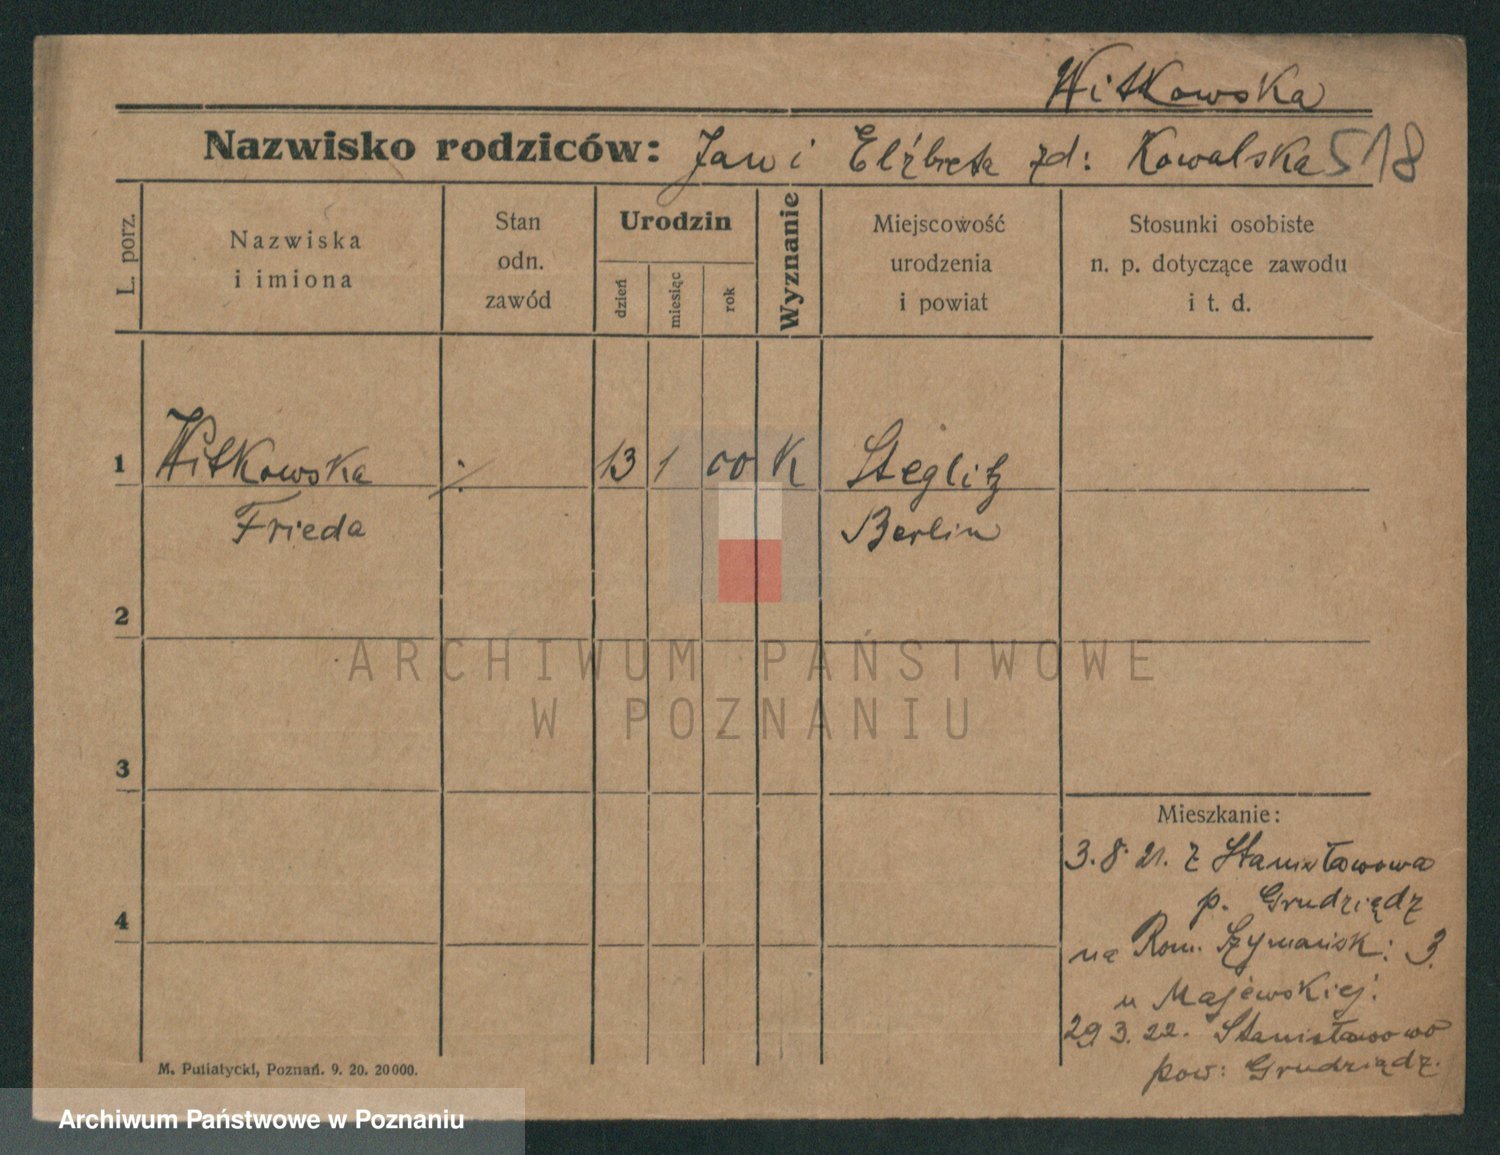 Witkowska
Nazwisko rodziców: Jan i Elżbieta zd: Kowalska 518
L. porz.
Nazwiska
i imiona
Stan
odn.
zawód
Urodzin
dzień
miesiąc
rok
Wyznanie
Miejscowość
urodzenia
i powiat
Stosunki osobiste
n. p. dotyczące zawodu
i t. d.
1 Witkowska ·/· 13 1 00 K Steglitz
Frieda Berlin
2
3
4
Mieszkanie:
3.8.21. z Stanisławowa
p. Grudziądz
na Rom. Szymańsk: 3.
u Majewskiej.
29 3. 22. Stanisławowo
pow: Grudziądz.
M. Putiatycki, Poznań. 9. 20. 20000.
ARCHIWUM PAŃSTWOWE
W POZNANIU
Archiwum Państwowe w Poznaniu